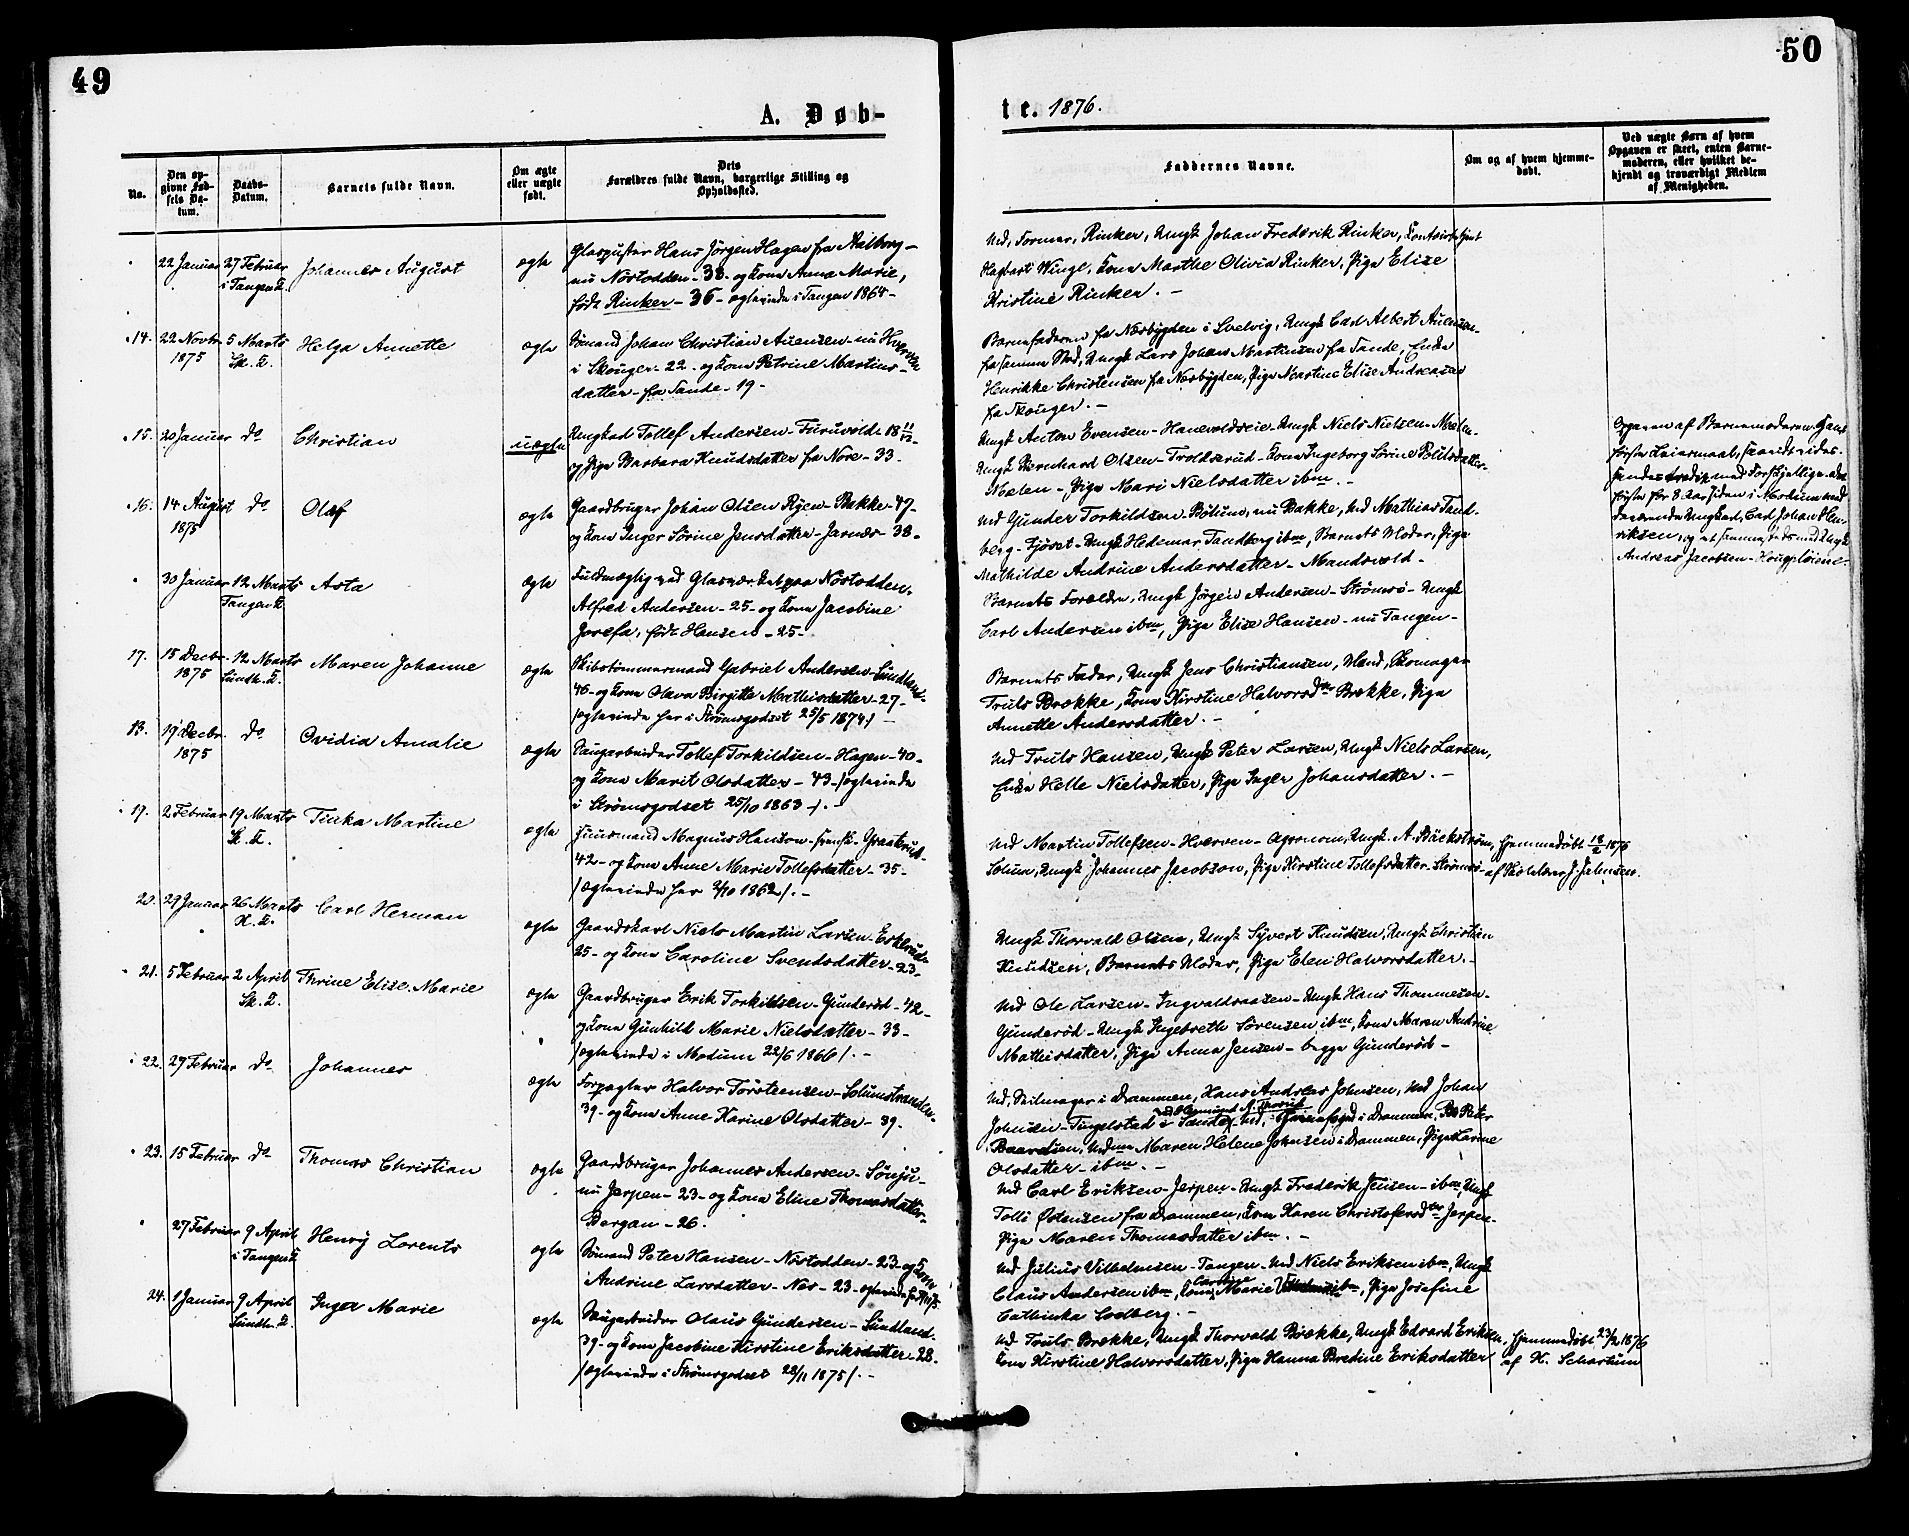 49
50
A. Døb-
te. 1876.
No.
Den op-
givne Fød-
sels Da-
tum.
Daabs-
Datum.
Barnets fulde Navn.
Om ægte
eller uægte
født.
Dets
Forældres fulde Navn, borgerlige Stilling og
Opholdssted.
Faddernes Navne.
Om og af hvem hjemme-
døbt.
Ved uægte Børn af hvem
Opgaven er skeet, enten Barne-
moderen, eller hvilket be-
kjendt og troværdigt Medlem
af Menigheden.
22 Januar 27 Februar Johannes August ægte Glaspuster Hans Jørgen Hagen fra Aalborg-
i Tangen K. nu Nøstodden - 38 - og Kone Anna Marie,
født Rinker - 36 - ægteviede i Tangen 1864 -
Ved, Former, Rinker, Ungk Johan Frederik Rinker,
Hagbart Winge, Kone Marthe Olivia Rinker, Pige Elise
Kristine Rinker. -
14. 22 Novbr 5 Marts Helga Annette ægte Sømand Johan Christian
1875 Sk. K. i Skouger - 22 - og Kone Petrine Martins-
datter - fra Sande - 19 -
Barnefaderen fra Nesbygden i Svelvig, Ungk Carl Albert
fra samme Sted, Ungk Lars Johan Martinsen fra Sande, Enke
Henrikke Christensen fra Nesbygden, Pige Martine Elise Andreasen
fra Skouger. -
15. 20 Januar do Christian uægte Ungkarl Tollef Andersen - 18 11/12 -
og Pige Barbara Knudsdatter fra Nore - 33.
Ungk Anton Evensen - Ungk Niels Nielsen - Mælen -
Ungk Bernhard Olsen - Troldsrud - Kone Ingeborg Sørine
Mælen - Pige Mari Nielsdatter ibm. -
Opgaven af Barnemoderen
første Leiermaal,
første for 8 Aar siden i Modum med
daværende Ungkarl, Carl Johan Hen-
riksen,
Andreas Jacobsen -
16. 14 August do Olaf ægte Gaardbruger Johan Olsen Ryen - Bakke - 47 -
1875 og Kone Inger Sørine Jensdatter - Jarnæs - 38 -
Ved Gunder Torkildsen - nu Bakke, Ved Mathias Sand-
berg - Ungk Hedemar Sandberg ibm, Barnets Moder, Pige
Mathilde Andrine Andersdatter -
30 Januar 12 Marts Asta ægte Fuldmægtig ved Glasværket paa Nøstodden,
Tangen K. Alfred Andersen - 25 - og Kone Jacobine
Josefa, født Hansen - 25 -
Barnets Forældre, Ungk Jørgen Andersen - Strømsø - Ungk
Carl Andersen ibm, Pige Elise Hansen - nu Tangen -
17. 15 Decbr. 12 Marts Maren Johanne ægte Skibstømmermand Gabriel Andersen - Sundland -
1875 Sundh. K. 46 - og Kone Olava Birgitte Mathisdatter - 27 -
/ægteviede her i Strømsgodset 25/5 1874/ -
Barnets Fader, Ungk Jens Christiansen, Mand, Skomager
Truls Brække, Kone Kirstine Halvorsdtr Brække, Pige
Annette Andersdatter. -
18. 19 Decbr. do Ovidia Amalie ægte Saugarbeider Tollef Torkildsen - Hagen - 40 -
1875 og Kone Marit Olsdatter - 43 - /ægteviede
i Strømsgodset 25/10 1863 -/. -
Ved Truls Hansen, Ungk Peter Larsen, Ungk Niels Larsen,
Enke Helle Nielsdatter, Pige Inger Johansdatter. -
19. 2 Februar 19 Marts Tinka Martine ægte Huusmand Magnus Hanson - svensk -
Sk. K. 42 - og Kone Anne Marie Tollefsdatter - 35 -
/ægteviede her 2/10 1862/. -
Ved Martin Tollefsen - Kværven - Agronom, Ungk. A. Bäckstrøm,
Solum, Ungk Johannes Jacobson, Pige Kirstine Tollefsdatter - Strømsø -
Hjemmedøbt 18/2 1876
af Skolelærer J. Johnsen.
20. 29 Januar 26 Marts Carl Herman ægte Gaardskarl Niels Martin Larsen - Eskerud -
Sk. K. 25 - og Kone Caroline Svendsdatter - 23 -
Ungk Thorvald Olsen, Ungk Syvert Knudsen, Ungk Christian
Knudsen, Barnets Moder, Pige Elen Halvorsdatter. -
21. 5 Februar 2 April Thrine Elise Marie ægte Gaardbruger Erik Torkildsen - Gunderød - 42 -
Sk. K. og Kone Gunhild Marie Nielsdatter - 33 -
/ægteviede i Modum 22/6 1866/. -
Ved Ole Larsen - Ingvaldsaasen - Ungk Hans Thommesen -
Gunderød - Ungk Ingebreth Sørensen ibm, Kone Maren Andrine
Mathisdatter, Pige Anna Jensen - begge Gunderød -
22. 27 Februar do Johannes ægte Forpagter Halvor Torsteensen - Solumstranden -
39 - og Kone Anne Karine Olsdatter - 39 -
Ved, Seilmager i Drammen, Hans Andreas Johnsen, Ved Johan
Johnsen - Tingelstad i Sande, i Drammen, Peter
Ved Maren Helene Johnsen i Drammen, Pige Karine
Olsdatter - ibm. -
23. 15 Februar do Thomas Christian ægte Gaardbruger Johannes Andersen - Sønju -
nu Jerpen - 23 - og Kone Eline Thomasdatter -
Bergan - 26.
Ved Carl Eriksen - Jerpen - Ungk Frederik Jensen - ibm, Ungk
Tolli Østensen fra Drammen, Kone Karen Christofersdtr Jerpen -
Pige Maren Thomasdatter ibm. -
27 Februar 9 April Henry Lorents ægte Sømand Peter Hansen - Nøstodden - 23 - og Kone
i Tangen K. Andrine Larsdatter - Nes - 23 -
Ved Julius Vilhelmsen - Tangen - Ved Niels Eriksen ibm, Ungk
Claus Andersen ibm, Kone Marie ibm, Pige Josefine
Cathinka Sodberg. -
24. 1 Januar 9 April Inger Marie ægte Saugarbeider Olaus Gundersen - Sundland -
Sundh. K. 39 - og Kone Jacobine Kirstine Eriksdatter - 28 -
/ægteviede i Strømsgodset 28/11 1875/. -
Ved Truls Brække, Ungk Thorvald Brække, Ungk Edvard Eriksen,
Kone Kirstine Halvorsdatter, Pige Hanna Bredine Eriksdatter
Hjemmedøbt 23/2 1876
af K. Scharhun